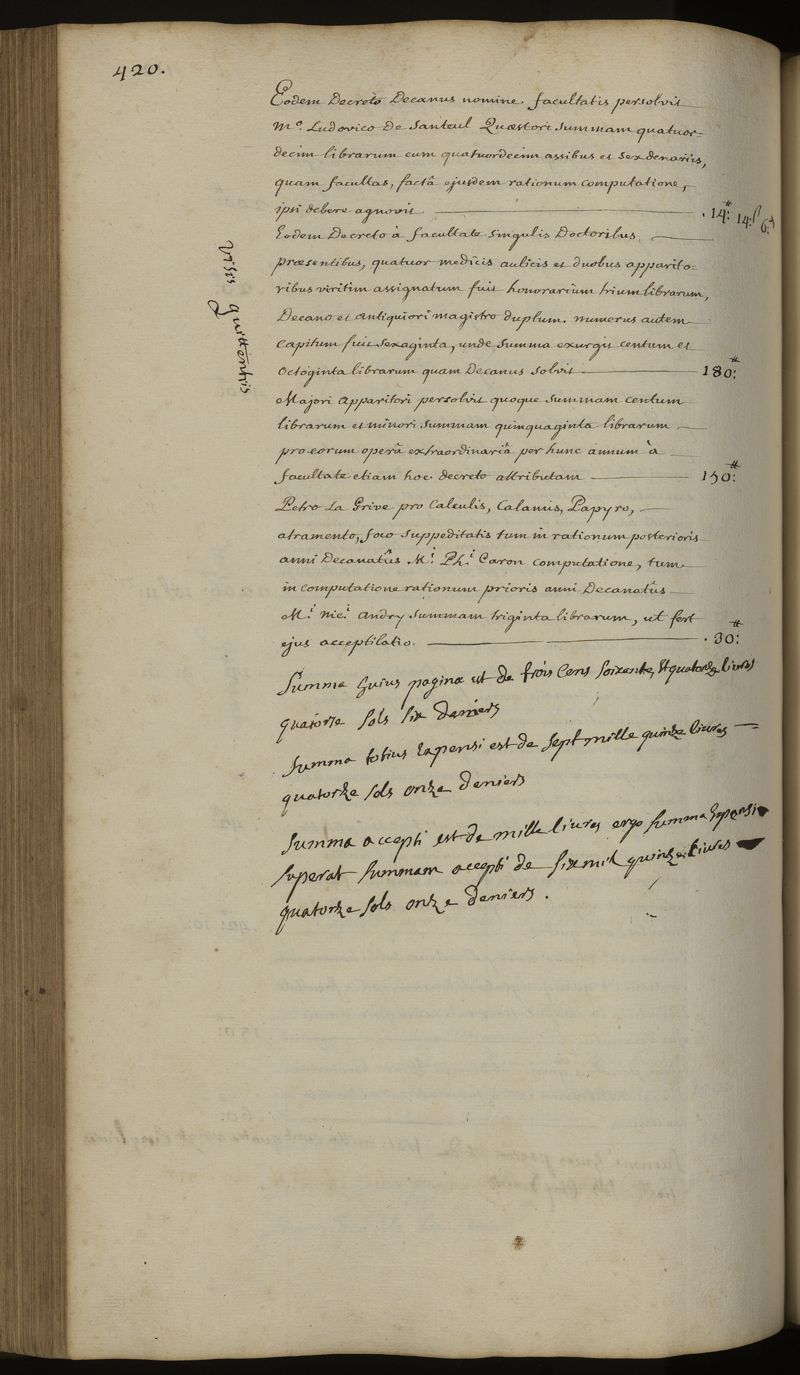 420.
Eodem Decreto Decanus nomine facultatis persolvit
M.o Ludovico De Santeul Quæstori summam quatuor=
decim librarum cum quatuordecim assibus et sex denariis,
quam facultas, factâ ejusdem rationum computatione,
ipsi debere agnovit. 14:tt 14:s 6:d
Eodem Decreto à facultate singulis Doctoribus
præsentibus, quatuor medicis aulicis et duobus apparito=
ribus viritim assignatum fuit honorarium trium librarum,
Decano et antiquiori magistro duplum. numerus autem
capitum fuit sexaginta, unde summa exurgit centum et
octoginta librarum quam Decanus solvit 180:tt
visis quittentiis
Majori apparitori persolvit quoque summam centum
librarum et minori summam quinquaginta librarum
pro eorum operâ extraordinariâ per hunc annum à
facultate etiam hoc decreto attributam 150:tt
Petro La Grive pro Calculis, Calamis, Papyro,
atramento, foco suppeditatis tum in rationum posterioris
anni Decanatûs M.i Ph.i Caron computatione, tum
in computatione rationum prioris anni Decanatûs
M.i Nic.i Andry summam triginta librarum, ut fert
ejus acceptilatio. 30:tt
Summa huius paginæ est de trois cens soixante, et quatorze livres
quatorze sols six deniers
Summa totius expensi est de sept mille quinze livres
quatorze sols onze deniers
Summa accepti est de mille livres ergo summa expensi
superat summam accepti de six mil quinze livres
quatorze sols onze deniers.